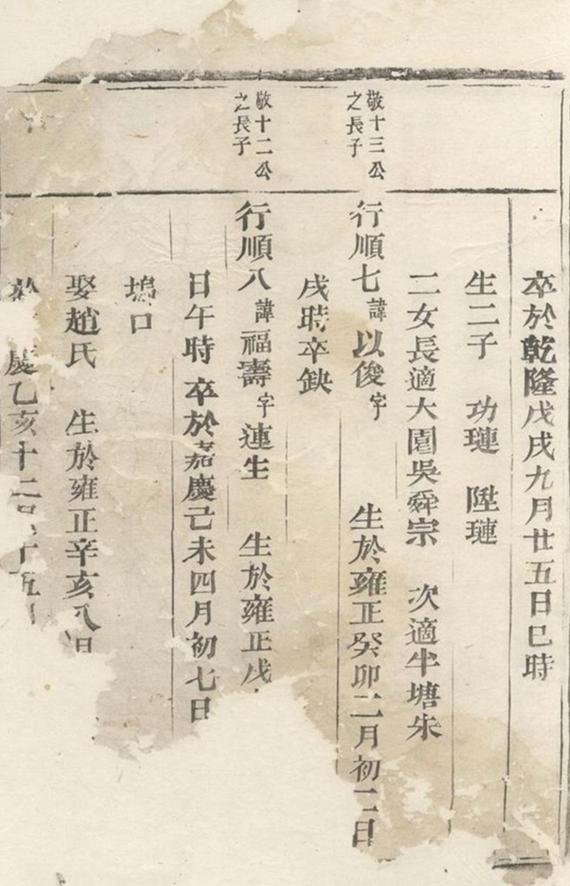 卒於乾隆戊戌九月廿五日巳時
生二子 功璉 陞璉
二女長適大園吳舜宗 次適半塘朱
敬十三公
之長子
行順七諱以俊字 生於雍正癸卯二月初二日
戌時卒缺
敬十二公
之長子
行順八諱福壽字連生 生於雍正戊
日午時卒於嘉慶己未四月初七日
塢口
娶趙氏 生於雍正辛亥八月
於 慶乙亥十二月十五日